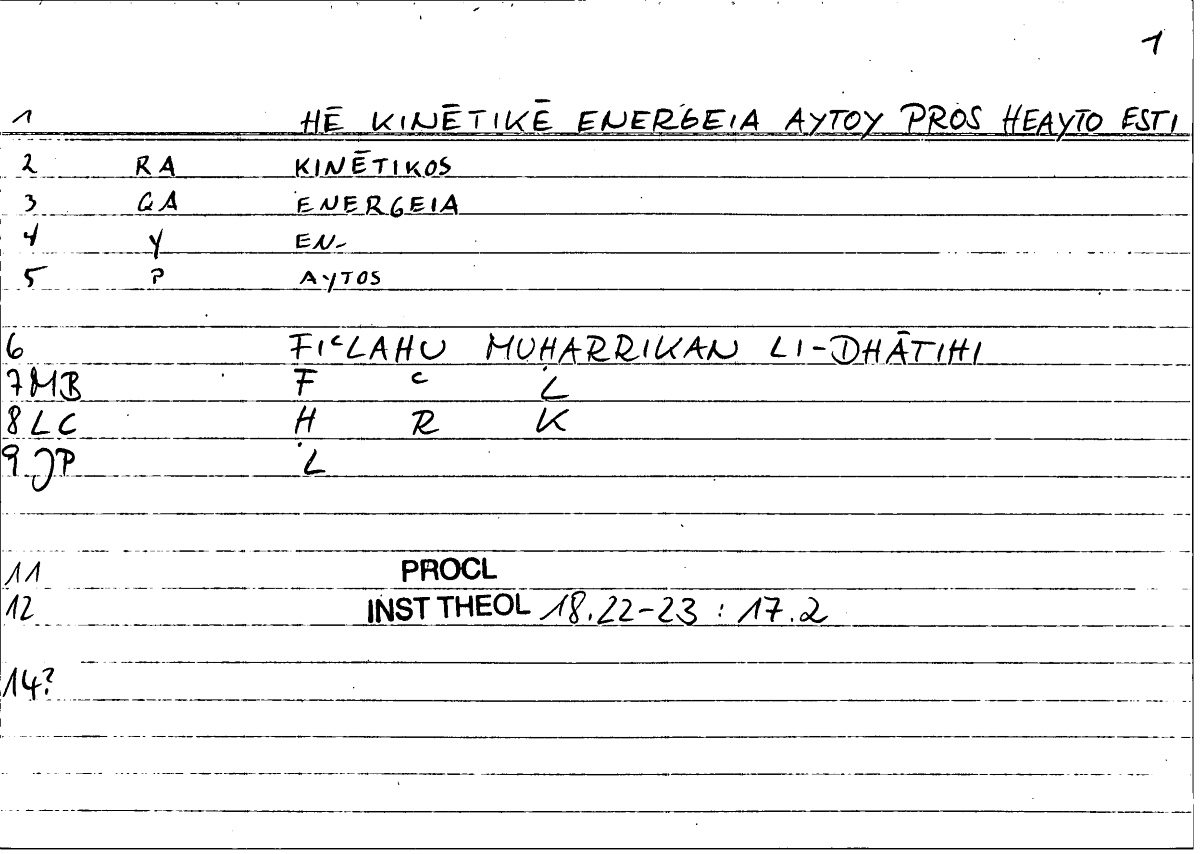 1
1 HĒ KINĒTIKĒ ENERGEIA AYTOY PROS HEAYTO ESTI
2 RA KINĒTIKOS
3 GA ENERGEIA
4 Y EN-
5 P AYTOS
6 FIᶜLAHU MUHARRIKAN LI-DHĀTIHI
7 MB F ᶜ L
8 LC H R K
9 JP L
11 PROCL
12 INST THEOL 18.22-23 : 17.2
14?